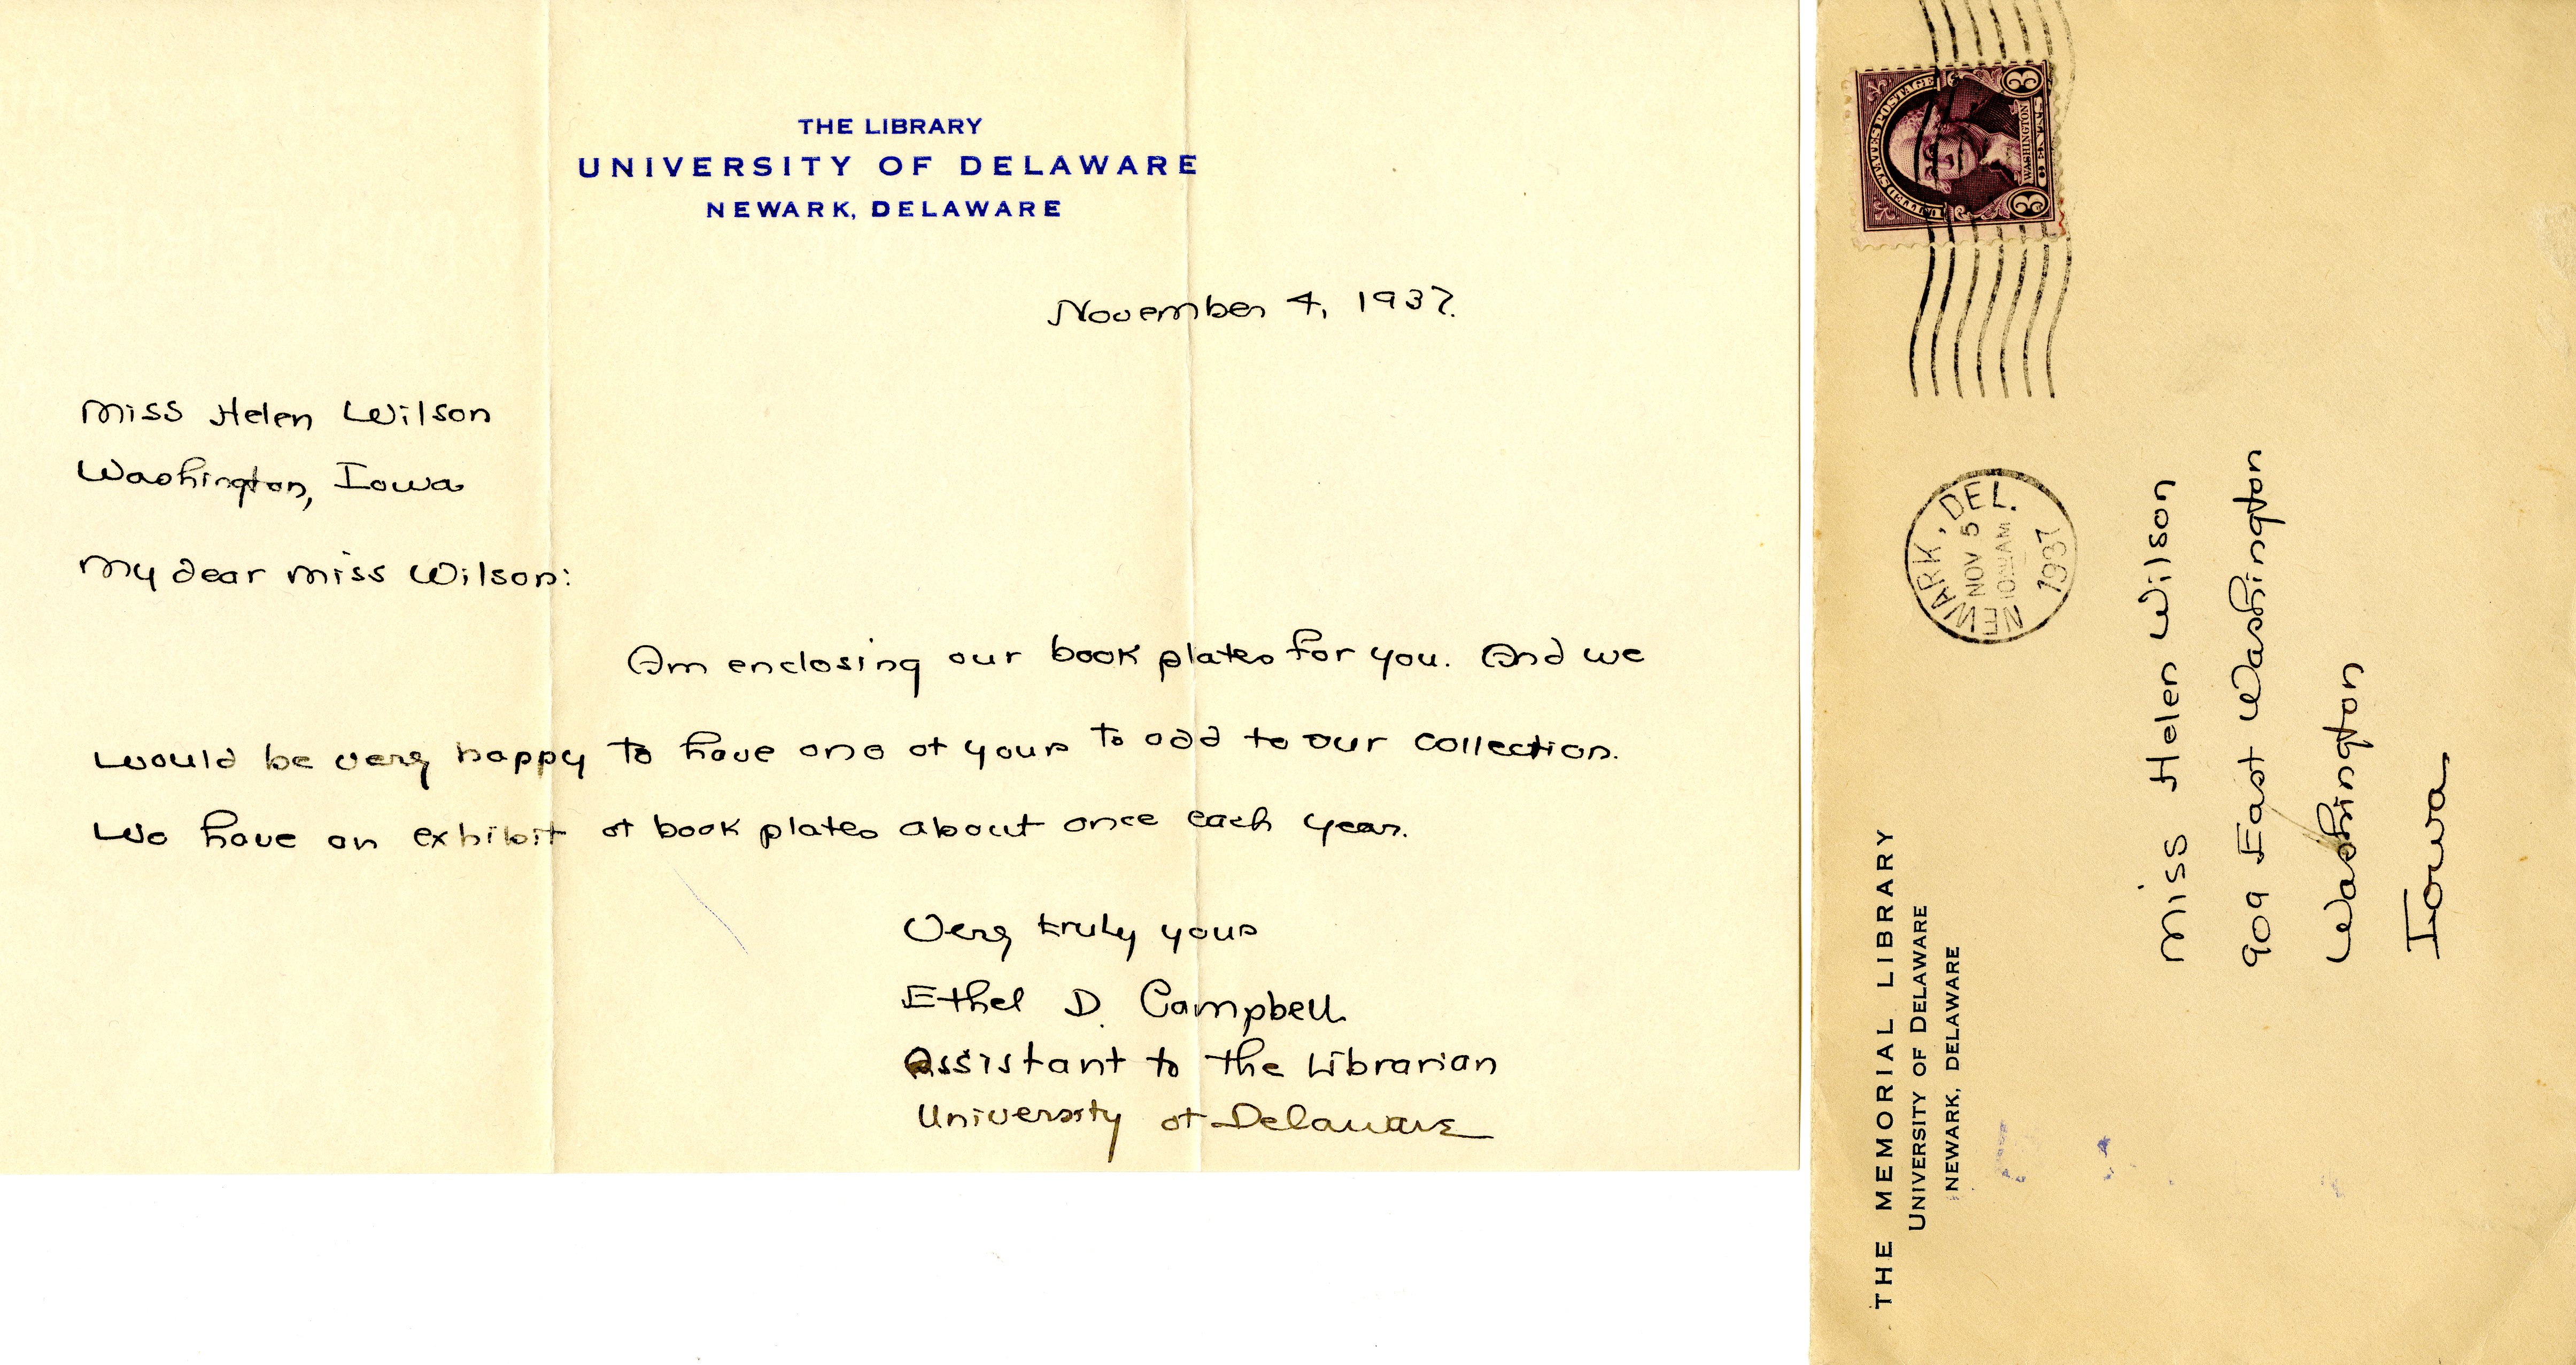 THE LIBRARY
UNIVERSITY OF DELAWARE
NEWARK, DELAWARE
November 4, 1937.
Miss Helen Wilson
Washington, Iowa
My dear Miss Wilson:
Am enclosing our book plates for you. And we
would be very happy to have one of yours to add to our collection.
We have an exhibit of book plates about once each year.
Very truly yours
Ethel D. Campbell
Assistant to the Librarian
University of Delaware
THE MEMORIAL LIBRARY
UNIVERSITY OF DELAWARE
NEWARK, DELAWARE
NEWARK, DEL.
NOV 5
10 AM
1937
UNITED STATES POSTAGE
WASHINGTON
3 CENTS 3
Miss Helen Wilson
909 East Washington
Washington
Iowa